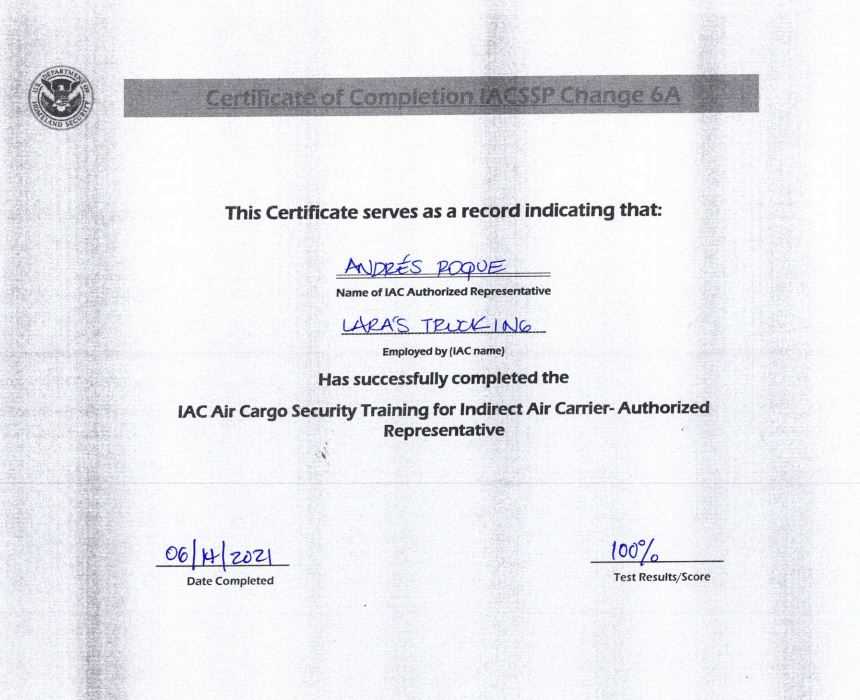 U.S. DEPARTMENT OF HOMELAND SECURITY
Certificate of Completion IACSSP Change 6A
This Certificate serves as a record indicating that:
ANDRÉS ROQUE
Name of IAC Authorized Representative
LARA'S TRUCKING
Employed by (IAC name)
Has successfully completed the
IAC Air Cargo Security Training for Indirect Air Carrier- Authorized
Representative
06/14/2021
100%
Date Completed
Test Results/Score